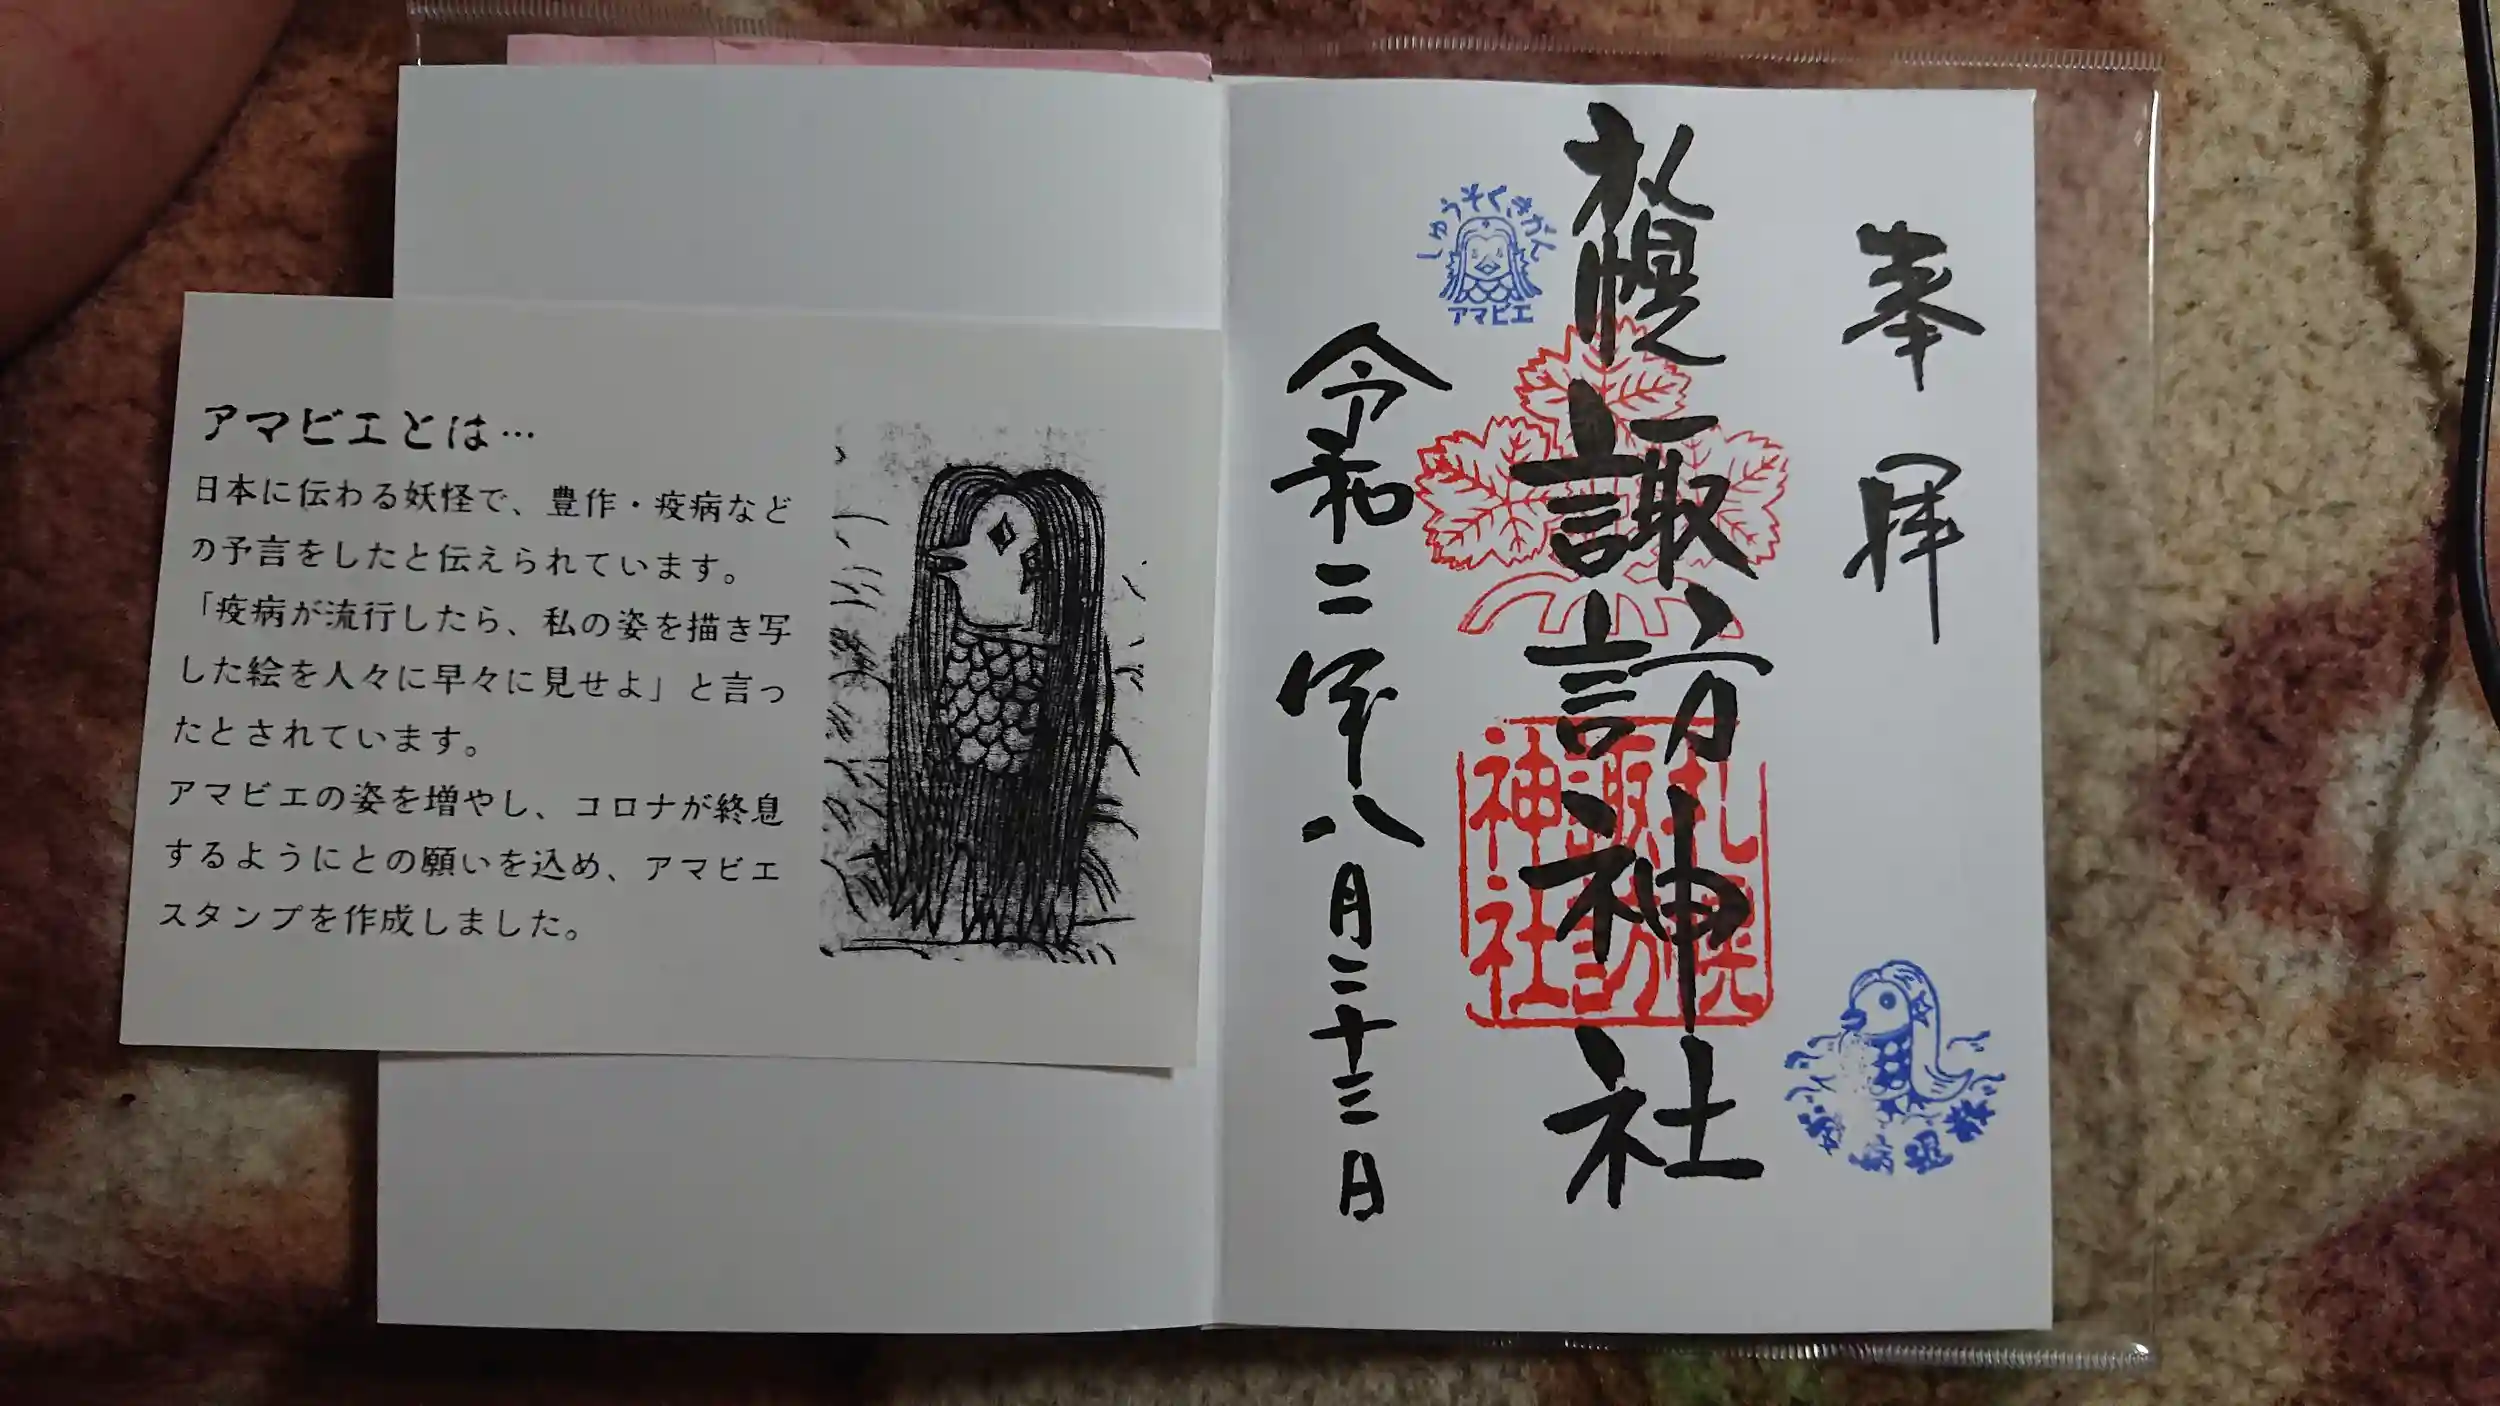 アマビエとは…
日本に伝わる妖怪で、豊作・疫病など
の予言をしたと伝えられています。
「疫病が流行したら、私の姿を描き写
した絵を人々に早々に見せよ」と言っ
たとされています。
アマビエの姿を増やし、コロナが終息
するようにとの願いを込め、アマビエ
スタンプを作成しました。
奉拝
札幌諏訪神社
令和二年八月二十三日
しゅうそくきがん
アマビエ
札幌
諏訪
神社